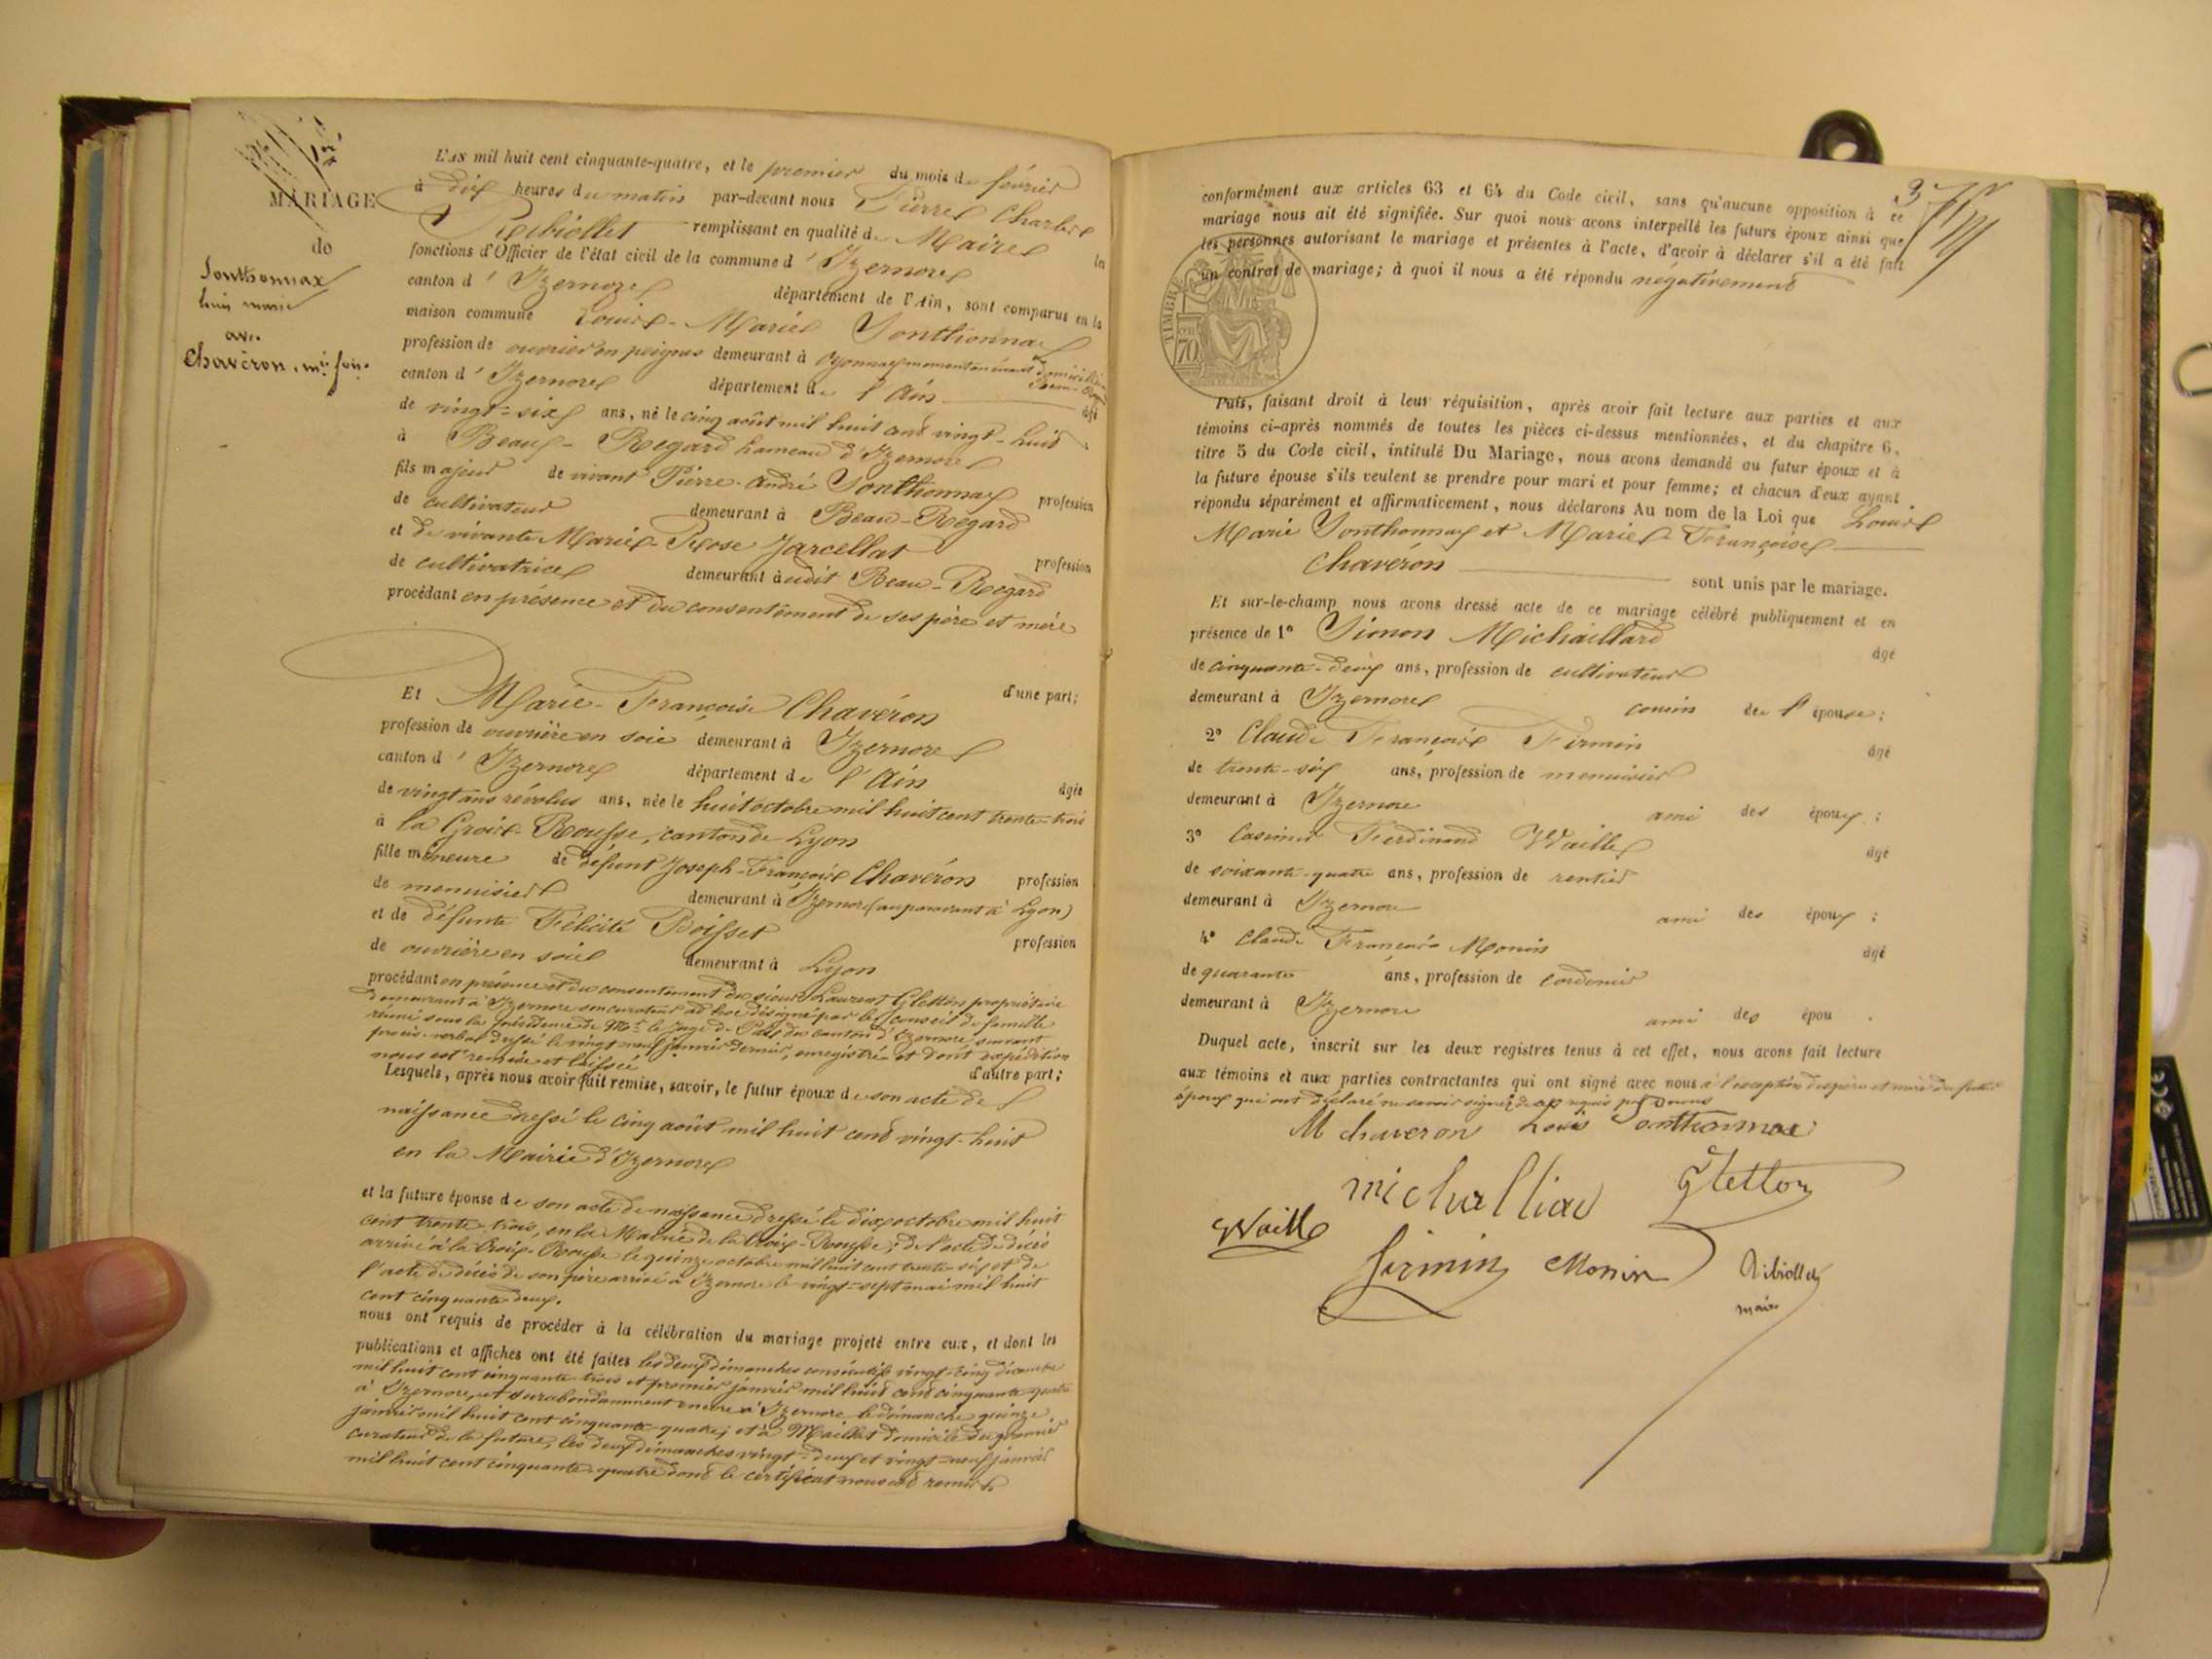 MARIAGE
de
Sonthonnax
louis marie
avec
Chavéron, mie foise
L'AN mil huit cent cinquante-quatre, et le premier du mois de février
à dix heures du matin par-devant nous Pierre Charles
Ribiollet remplissant en qualité de Maire les
fonctions d'Officier de l'état civil de la commune d'Izernore
canton d'Izernore département de l'Ain, sont comparus en la
maison commune Louis-Marie Sonthonnax
profession de ouvrier en peignes demeurant à Oyonnax momentanément domicilié à Beau-Regard
canton d'Izernore département de l'Ain âgé
de vingt-six ans, né le cinq août mil huit cent vingt-huit
à Beau-Regard hameau d'Izernore
fils majeur de vivant Pierre-André Sonthonnax profession
de cultivateur demeurant à Beau-Regard
et de vivante Marie-Rose Jarcellat profession
de cultivatrice demeurant audit Beau-Regard
procédant en présence et du consentement de ses père et mère
d'une part;
Et Marie-Françoise Chavéron
profession de ouvrière en soie demeurant à Izernore
canton d'Izernore département de l'Ain âgée
de vingt ans révolus ans, née le huit octobre mil huit cent trente-trois
à la Croix-Rousse, canton de Lyon
fille mineure de défunt Joseph-François Chavéron profession
de menuisier demeurant à Izernore (auparavant à Lyon)
et de défunte Félicité Boisset profession
de ouvrière en soie demeurant à Lyon
procédant en présence et du consentement du sieur Laurent Gletton propriétaire
demeurant à Izernore son curateur ad hoc désigné par le conseil de famille
réuni sous la présidence de Mr le Juge de Paix du canton d'Izernore suivant
procès-verbal dressé le vingt-neuf janvier dernier, enregistré et dont expédition
nous est remise et laissée d'autre part;
Lesquels, après nous avoir fait remise, savoir, le futur époux de son acte de
naissance dressé le cinq août mil huit cent vingt-huit
en la Mairie d'Izernore
et la future épouse de son acte de naissance dressé le dix octobre mil huit
cent trente-trois, en la Mairie de la Croix-Rousse; de l'acte de décès
arrivé à la Croix-Rousse le quinze octobre mil huit cent trente-six et de
l'acte de décès de son père arrivé à Izernore le vingt-sept mai mil huit
cent cinquante deux.
nous ont requis de procéder à la célébration du mariage projeté entre eux, et dont les
publications et affiches ont été faites les deux dimanches consécutifs vingt-cinq décembre
mil huit cent cinquante-trois et premier janvier mil huit cent cinquante-quatre
à Izernore, et surabondamment encore à Izernore le dimanche quinze
janvier mil huit cent cinquante-quatre; et à Maillat domicile du premier
curateur de la future, les deux dimanches vingt-deux et vingt-neuf janvier
mil huit cent cinquante-quatre dont le certificat nous est remis
3
conformément aux articles 63 et 64 du Code civil, sans qu'aucune opposition à ce
mariage nous ait été signifiée. Sur quoi nous avons interpellé les futurs époux ainsi que
les personnes autorisant le mariage et présentes à l'acte, d'avoir à déclarer s'il a été fait
un contrat de mariage; à quoi il nous a été répondu négativement
TIMBRE
70
Puis, faisant droit à leur réquisition, après avoir fait lecture aux parties et aux
témoins ci-après nommés de toutes les pièces ci-dessus mentionnées, et du chapitre 6,
titre 5 du Code civil, intitulé Du Mariage, nous avons demandé au futur époux et à
la future épouse s'ils veulent se prendre pour mari et pour femme; et chacun d'eux ayant
répondu séparément et affirmativement, nous déclarons Au nom de la Loi que Louis
Marie Sonthonnax et Marie Françoise
Chavéron sont unis par le mariage.
Et sur-le-champ nous avons dressé acte de ce mariage célébré publiquement et en
présence de 1° Simon Michaillard âgé
de cinquante-deux ans, profession de cultivateur
demeurant à Izernore cousin de l'épouse;
2° Claude François Firmin âgé
de trente-six ans, profession de menuisier
demeurant à Izernore ami des époux;
3° Casimir Ferdinand Waille âgé
de soixante-quatre ans, profession de rentier
demeurant à Izernore ami des époux;
4° Claude François Monin âgé
de quarante ans, profession de cordonnier
demeurant à Izernore ami des épou.
Duquel acte, inscrit sur les deux registres tenus à cet effet, nous avons fait lecture
aux témoins et aux parties contractantes qui ont signé avec nous à l'exception des père et mère du futur
époux qui ont déclaré ne savoir signer de ce requis par nous
M chaveron Louis Sonthonnax
michalliard Gletton
Waille
firmin Monin Ribiollet
maire